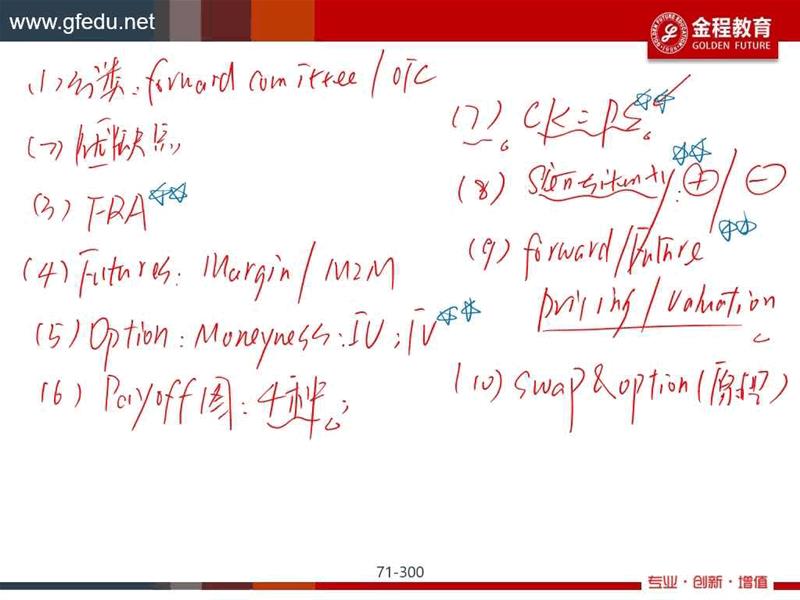 www.gfedu.net
金程教育
GOLDEN FUTURE
(1) 分类: forward comittee / OTC
(2) 优缺点;
(3) FRA
(4) Futures: Margin / M2M
(5) Option: Moneyness: IV; TV
(6) Payoff图: 4种;
(7) CK=PS
(8) Sensitivity: + / -
(9) forward / Future
pricing / valuation
(10) swap & option (原理)
71-300
专业·创新·增值